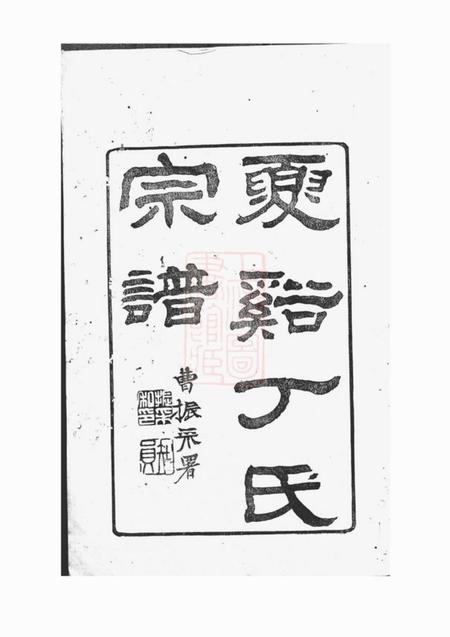 夏谿丁氏
宗譜
曹振采署